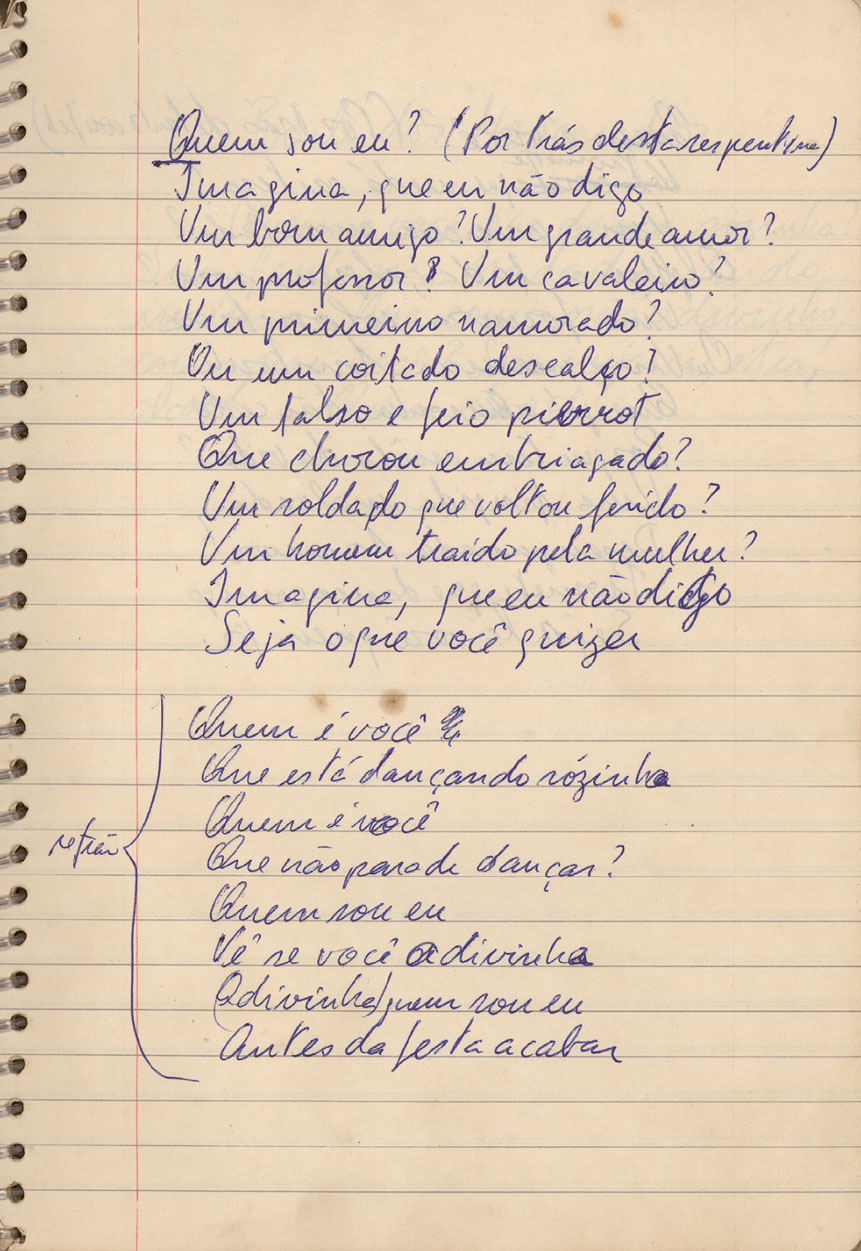 Quem sou eu? (Por trás desta respentina)
Imagina, que eu não digo
Um bom amigo? Um grande amor?
Um professor? Um cavaleiro?
Um primeiro namorado?
Ou um coitado descalço?
Um falso e feio pierrot
Que chorou embriagado?
Um soldado que voltou ferido?
Um homem traído pela mulher?
Imagina, que eu não digo
Seja o que você quizer
Quem é você
Que está dançando sózinha
Quem é você
refrão
Que não para de dançar?
Quem sou eu
Vê se você adivinha
(Adivinha) quem sou eu
Antes da festa acabar